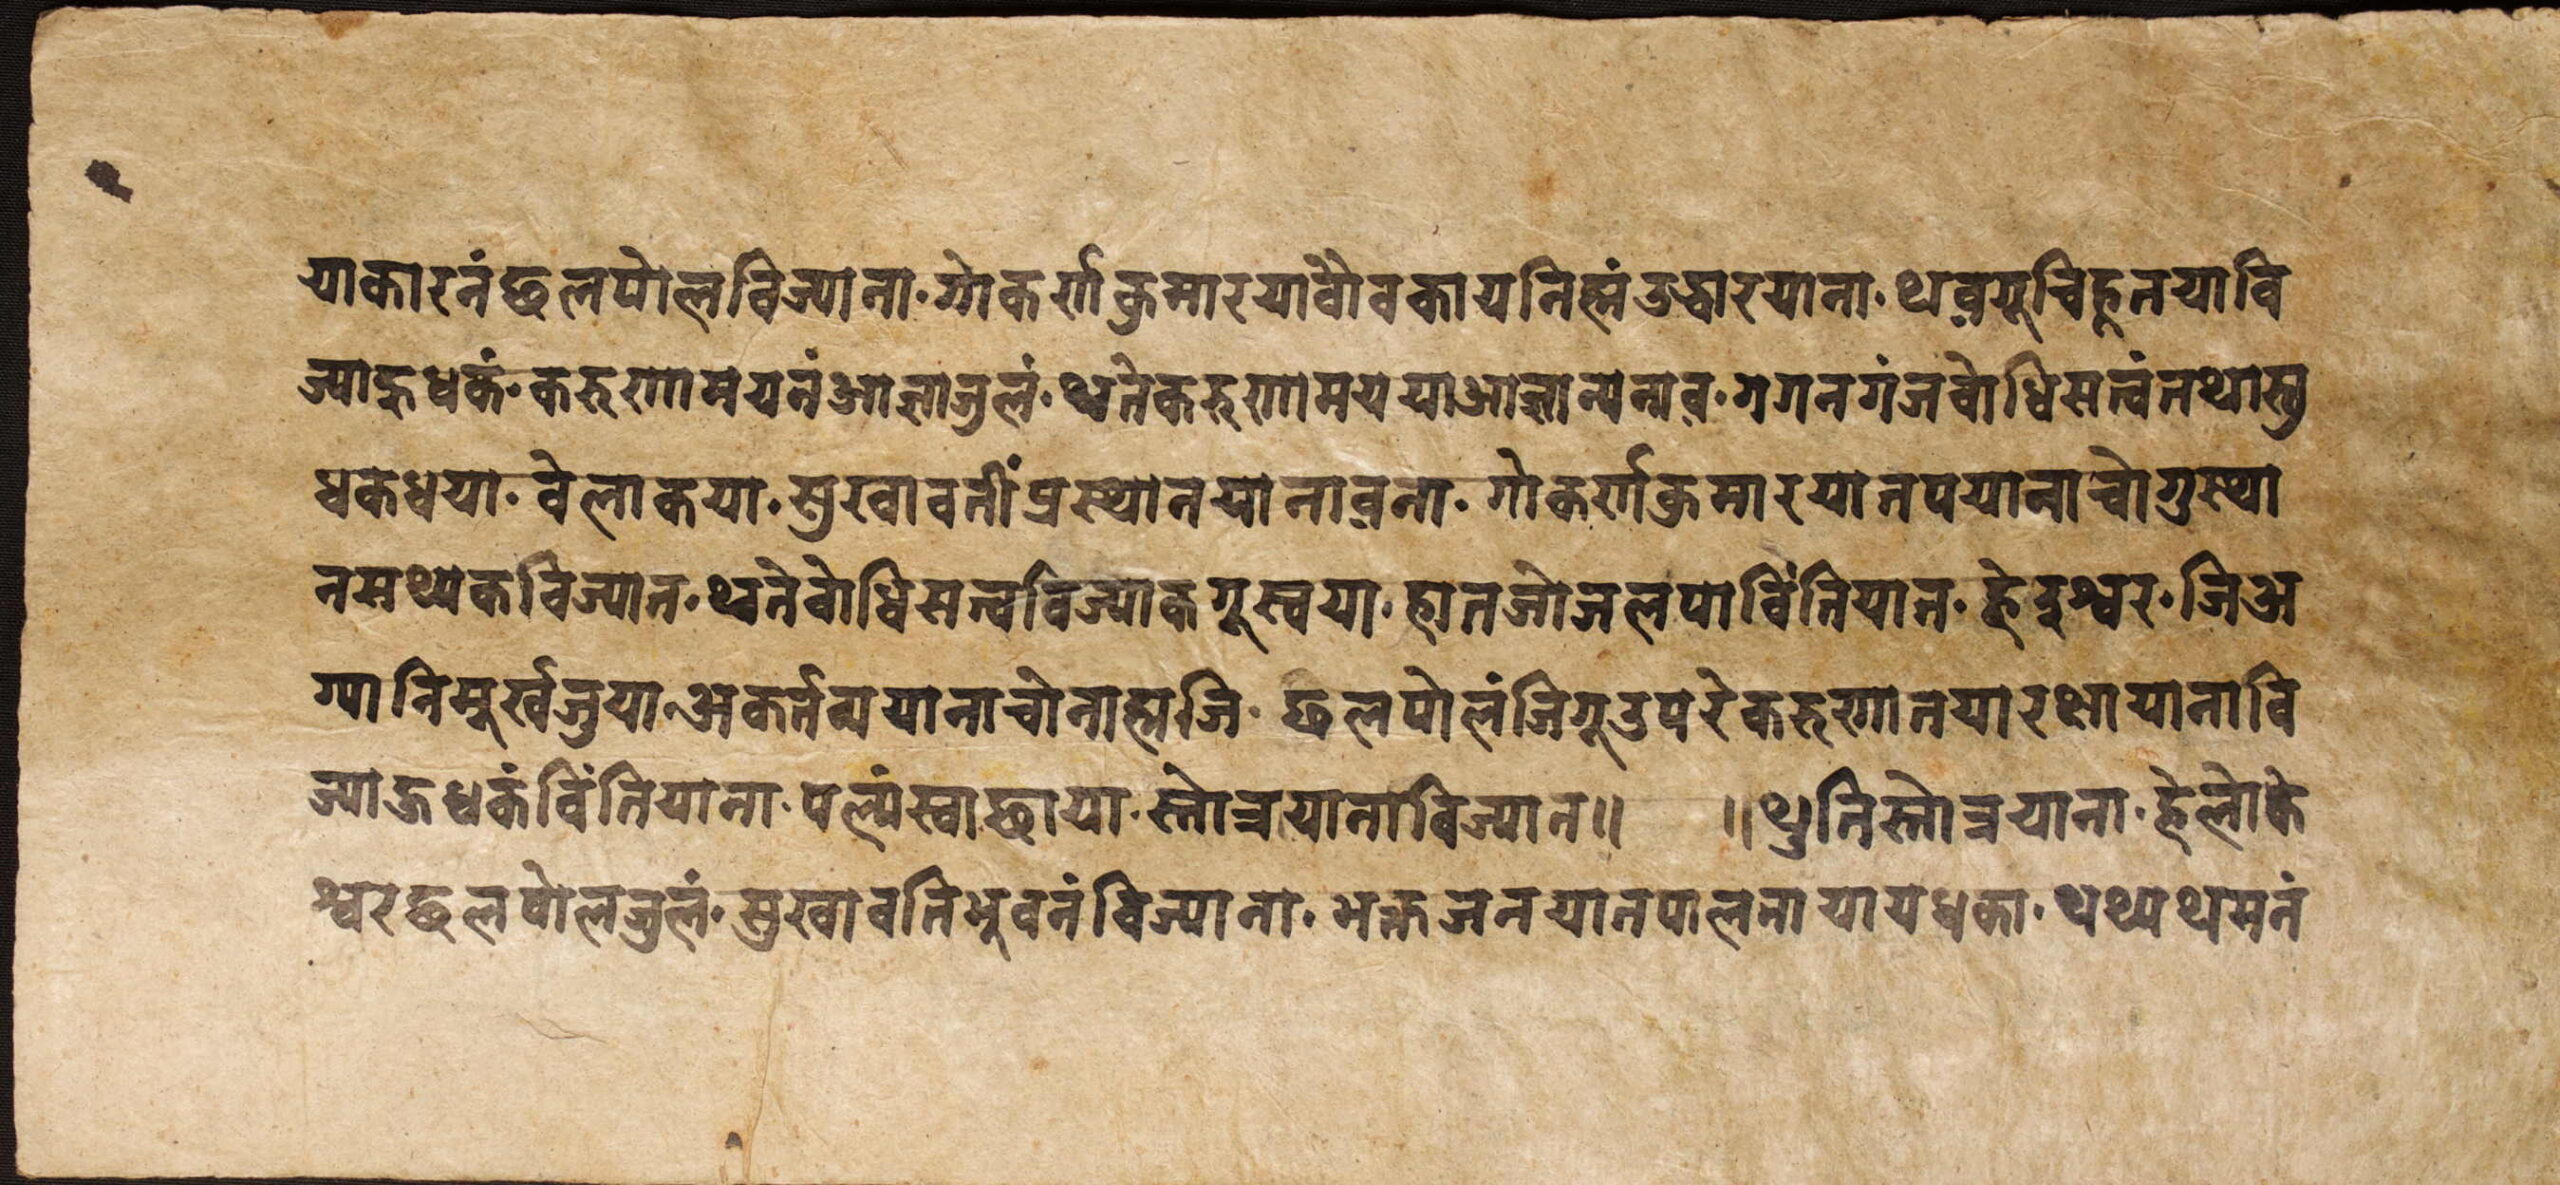 याकारनंछलपोलविज्याना. गोकर्णकुमारयावौवकायनिह्मंउद्धारयाना. थव़मूचिहूनयावि
ज्याहुधकं. करुणामयनंआज्ञाजुलं. थ्वतेकरुणामययाआज्ञान्यनाव़. गगनगंजबोधिसत्वंतथास्तु
धकधया. वेलाकया. सुखावतीं प्रस्थानयानाव़ना. गोकर्णकुमारयातपयानाचोगुस्था
नसथ्यकविज्यात. थ्वतेबोधिसत्वविज्याकगूस्वया. हातजोजलपाविंतियात. हेइश्वर. जिअ
ग्यानिमुर्खजुया. अकर्तव्ययानाचोनाह्मजि. छलपोलंजिगूउपरेकरुणातयारक्षायानावि
ज्याऊधकंविंतियाना. पल्यंस्वाछाया. स्तोत्रयानाविज्यात॥ ॥थुतिस्तोत्रयाना. हेलोके
श्वरछलपोलजुलं. सुखावतिभुवनंविज्याना. भक्तजनयातपालनायायधका. थथ्यथमनं